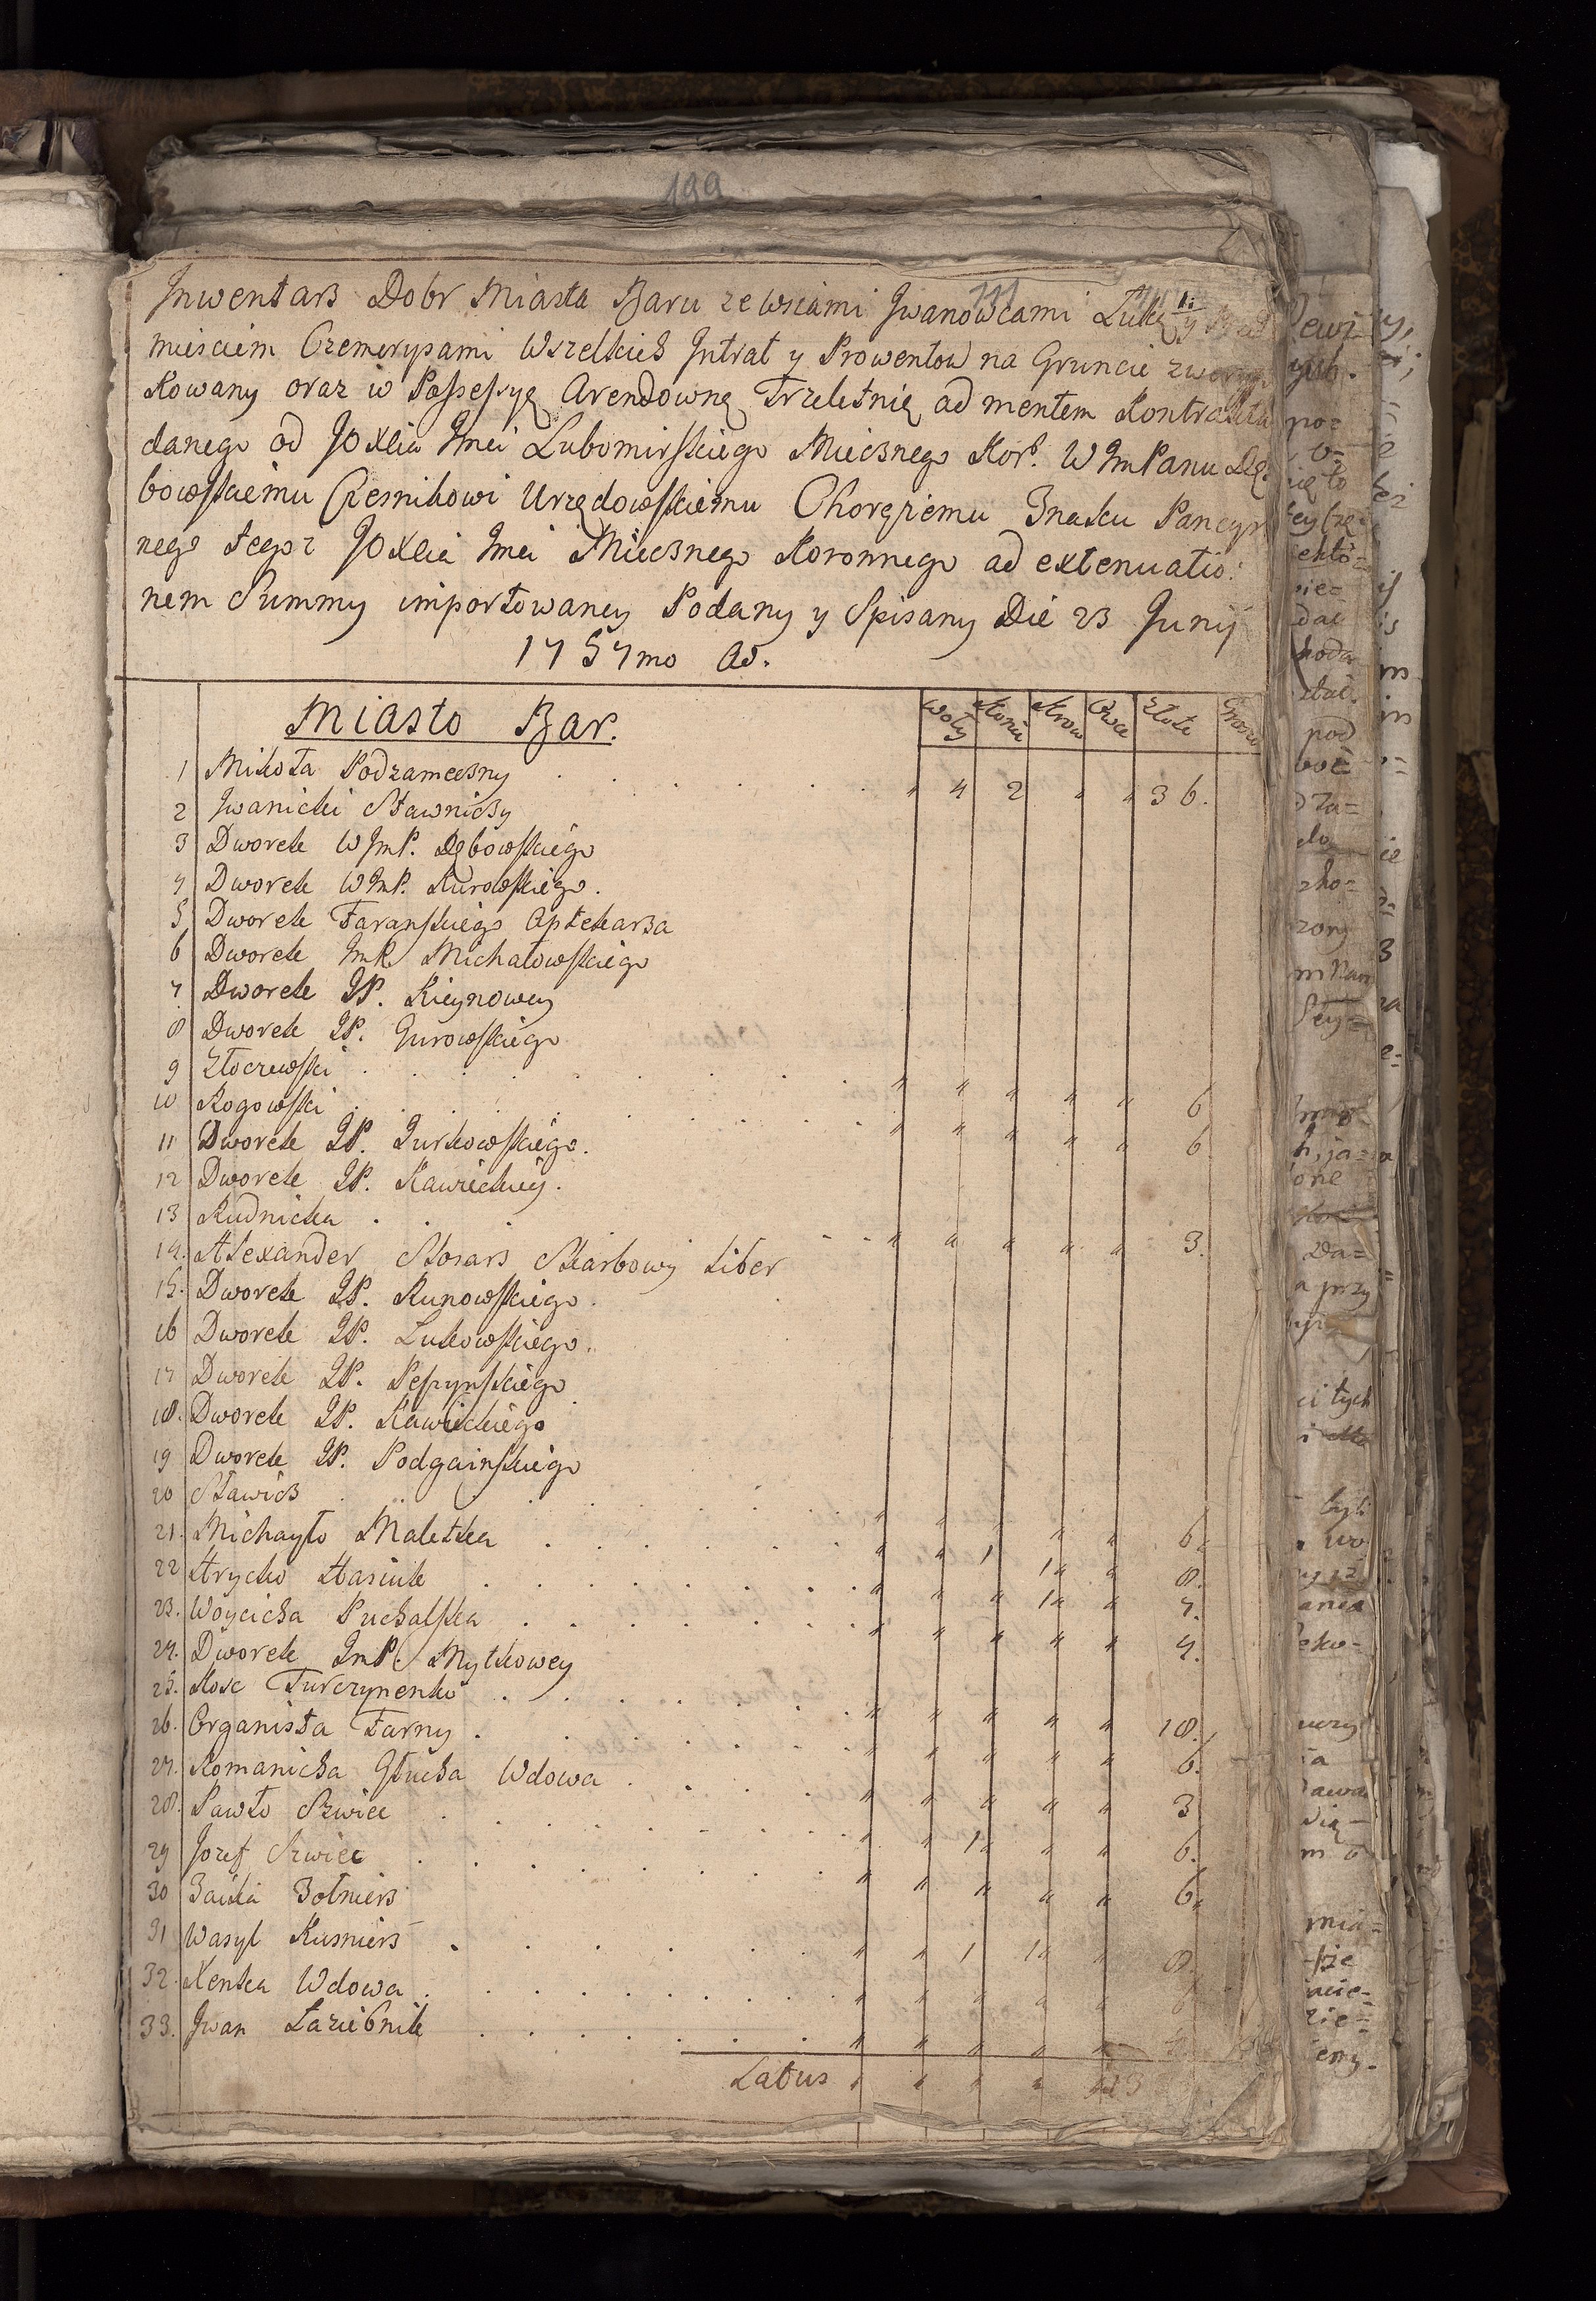 199
111
Jnwentarz Dobr Miasta Baru ze wsiami Jwanowcami Łuką y Przed
miesciem Czemerysami Wszelkich Jntrat y Prowentow na Gruncie zweryfi
kowany oraz w Possessyą Arendowną Trzeletnią ad mentem Kontraktu
danego od JO Xcia Jmci Lubomirskiego Miecznego Kor. W JmPanu Dę
bowskiemu Czesnikowi Urzędowskiemu Chorążemu Znaku Pancyr
nego tegoz JO Xcia Jmci Miecznego Koronnego ad extenuatio:
nem Summy importowaney Podany y Spisany Die 23 Junij
1757mo Ao.
Miasto Bar. Woły Konie Krow Owce Złote Grosze
1 Mikoła Podzameczny " 4 2 " " 36.
2 Jwanicki Stawniczy
3 Dworek WJmP. Dębowskiego
4 Dworek WJmP. Kurowskiego.
5 Dworek Taranskiego Aptekarza
6 Dworek JmP. Michałowskiego
7 Dworek JP. Kieynowey
8 Dworek JP. Gurowskiego
9 Złoczewski " " " " " 6
10 Rogowski " " " " " 6
11 Dworek JP. Jurkowskiego.
12 Dworek JP. Kawieckiey.
13 Rudnicka " " " " " 3.
14. Alexander Stosarz Skarbowy Liber
15. Dworek JP. Kunowskiego.
16 Dworek JP. Lukowskiego.
17 Dworek JP. Peszynskiego
18. Dworek JP. Kawieckiego
19 Dworek JP. Podgainskiego
20 Stawicz " " " " " 6.
21. Michayło Maletka " " 1 1 " 8.
22 Hrycko Hasiuk " " " 1 " 7.
23. Woycicha Puchalska " " " " " 4.
24. Dworek JmP. Mytkowey
25. Kosc Turczynenko " " " " " 18.
26. Organista Farny " " " " " 6.
27. Romanicha Głucha Wdowa " " " " " 3
28. Pawło Szwiec " " 1 " " 6.
29 Jozef Szwiec " " " " " 6.
30 Zaika Zołnierz
31 Wasyl Kusnierz " " 1 1 " 8.
32. Xenka Wdowa " " " "
33. Jwan Łaziebnik " " " " "
Latus " " " "